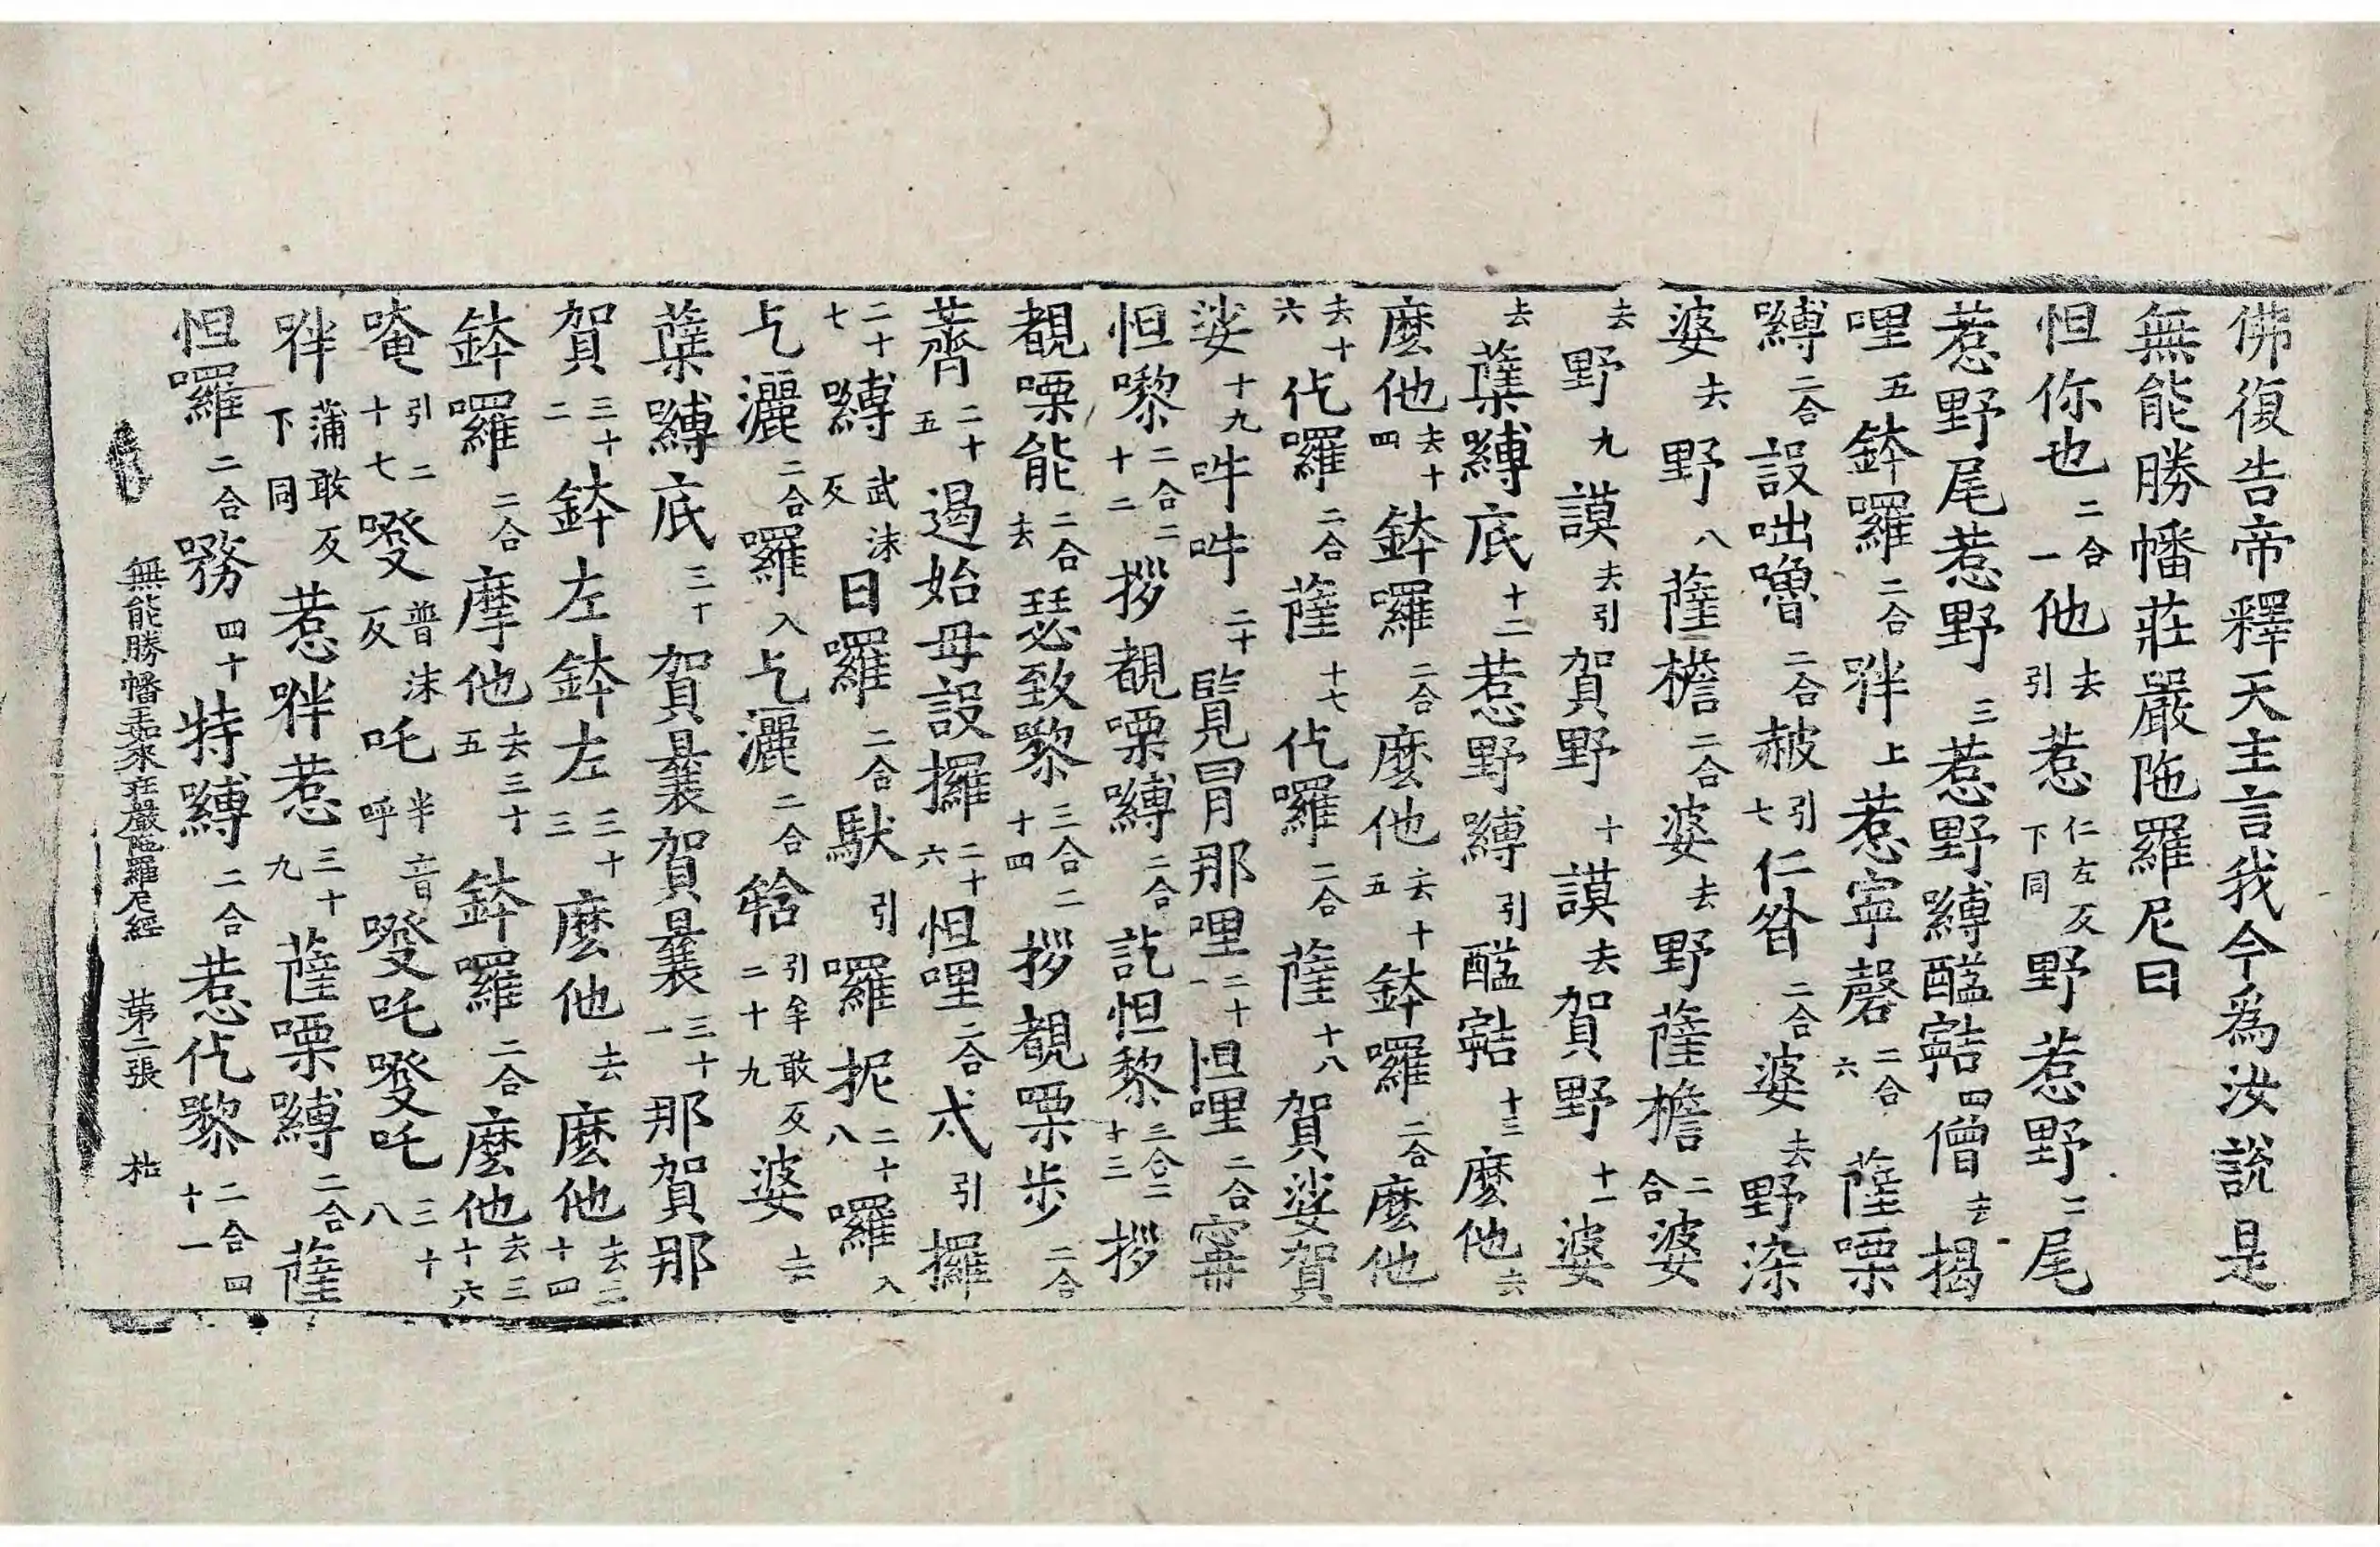 佛復告帝釋天主言我今為汝說是
無能勝幡莊嚴陁羅尼曰
怛你也二合一他去引惹仁左反下同野惹野二尾
惹野尾惹野三惹野嚩醯寗四僧去揭
哩五鉢囉二合哖上惹寧罄二合六薩㗚
嚩二合設咄嚕二合赧引七仁昝二合婆去野染
婆去野八薩檐二合婆去野薩檐二合婆
去野九謨去引賀野十謨去賀野十一婆
去蘗嚩底十二惹野嚩引醯寗十三麽他去
麽他去十四鉢囉二合麽他去十五鉢囉二合麽他
去十六仡囉二合薩十七仡囉二合薩十八賀娑賀
娑十九吽吽二十覽冐那哩二十一怛哩二合寗
怛嚟二合二十二拶覩㗚嚩二合訖怛黎三合二十三拶
覩㗚能二合去瑟致嚟三合二十四拶覩㗚步二合
薺二十五遏始毋設攞二十六怛哩二合忒引攞
二十七嚩武沫反日囉二合馱引囉抳二十八囉入
乞灑二合囉入乞灑二合𤚥引牟敢反二十九婆去
蘗嚩底三十賀曩賀曩三十一那賀那
賀三十二鉢左鉢左三十三麽他去麽他去三十四
鉢囉二合摩他去三十五鉢囉二合麽他去三十六
唵引二十七㗶普沫反吒半音呼㗶吒㗶吒三十八
哖蒲敢反下同惹哖惹三十九薩㗚嚩二合薩
怛囉二合務四十特嚩二合惹仡嚟二合四十一
無能勝幡王如來莊嚴陁羅尼經 苐二張 枯